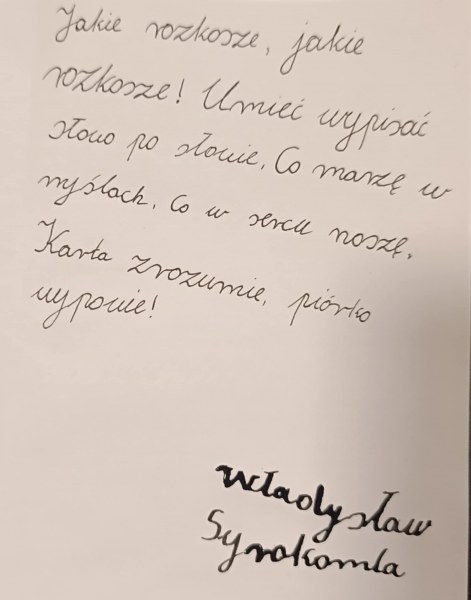 Jakie rozkosze, jakie
rozkosze! Umieć wypisać
słowo po słowie, Co marzę w
myślach, Co w sercu noszę,
Karta zrozumie, piórko
wypowie!
Władysław
Syrokomla